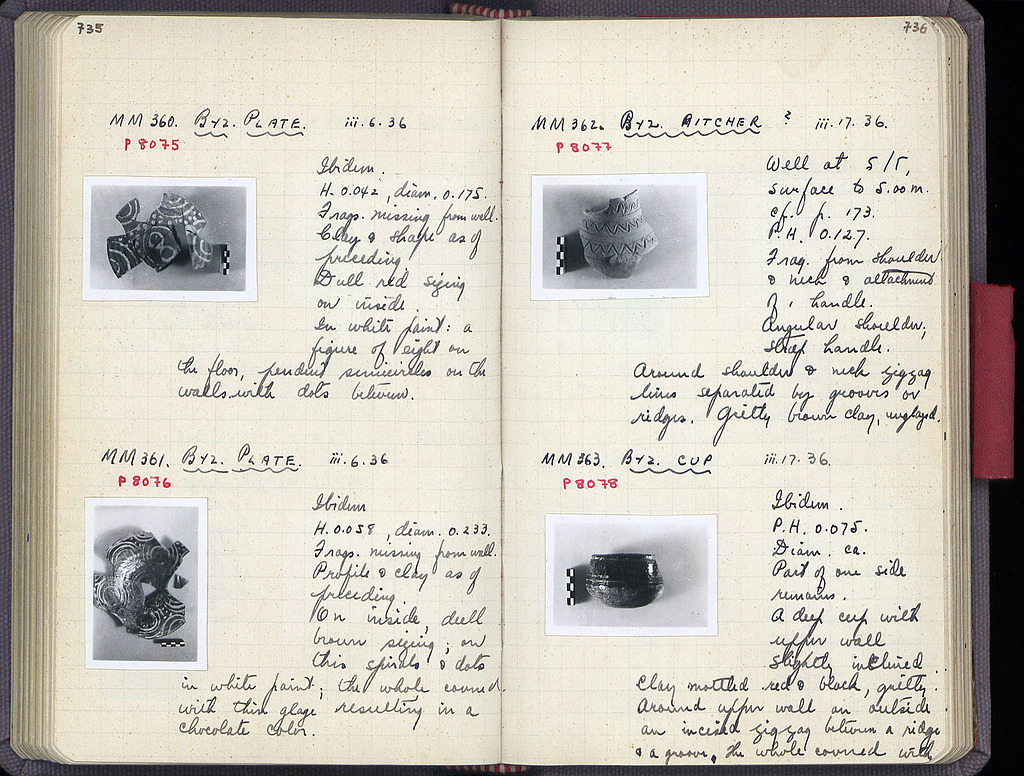 735
MM 360. Byz. PLATE. iii.6.36
P 8075
Ibidem.
H. 0.042, diam. 0.175.
Frags. missing from wall.
Clay & shape as of
preceding
Dull red sizing
on inside.
In white paint: a
figure of eight on
the floor, pendent semicircles on the
walls with dots between.
MM 361. Byz. PLATE. iii.6.36
P 8076
Ibidem
H. 0.058, diam. 0.233.
Frags. missing from wall.
Profile & clay as of
preceding
On inside, dull
brown sizing; on
this spirals & dots
in white paint; the whole covered
with thin glaze resulting in a
chocolate color.
736
MM 362. Byz. PITCHER ? iii.17.36.
P 8077
Well at 5/Γ,
surface to 5.00 m.
cf. p. 173.
P.H. 0.127.
Frag. from shoulder
& neck & attachment
of 1 handle.
Angular shoulder;
strap handle.
Around shoulder & neck zigzag
lines separated by grooves or
ridges. Gritty brown clay, unglazed.
MM 363. Byz. CUP iii.17.36.
P 8078
Ibidem.
P.H. 0.075.
Diam. ca.
Part of one side
remains.
A deep cup with
upper wall
slightly inclined.
Clay mottled red & black, gritty.
Around upper wall on outside
an incised zigzag between a ridge
& a groove, the whole covered with